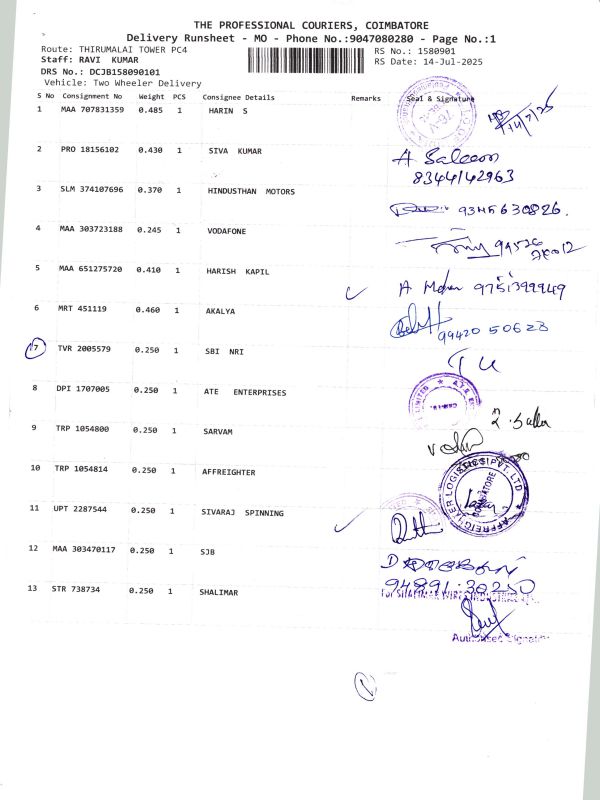 THE PROFESSIONAL COURIERS, COIMBATORE
Delivery Runsheet - MO - Phone No.:9047080280 - Page No.:1
Route: THIRUMALAI TOWER PC4
RS No.: 1580901
Staff: RAVI KUMAR
RS Date: 14-Jul-2025
DRS No.: DCJB158090101
Vehicle: Two Wheeler Delivery
S No Consignment No Weight PCS Consignee Details Remarks Seal & Signature
1 MAA 707831359 0.485 1 HARIN S
2 PRO 18156102 0.430 1 SIVA KUMAR A Saleem
8344142963
3 SLM 374107696 0.370 1 HINDUSTHAN MOTORS 9345630826.
4 MAA 303723188 0.245 1 VODAFONE
5 MAA 651275720 0.410 1 HARISH KAPIL A Mohan 9751399949
6 MRT 451119 0.460 1 AKALYA 99420 50628
7 TVR 2005579 0.250 1 SBI NRI
8 DPI 1707005 0.250 1 ATE ENTERPRISES
9 TRP 1054800 0.250 1 SARVAM
10 TRP 1054814 0.250 1 AFFREIGHTER
11 UPT 2287544 0.250 1 SIVARAJ SPINNING
12 MAA 303470117 0.250 1 SJB
94891-30250
13 STR 738734 0.250 1 SHALIMAR
Authorised Signatory